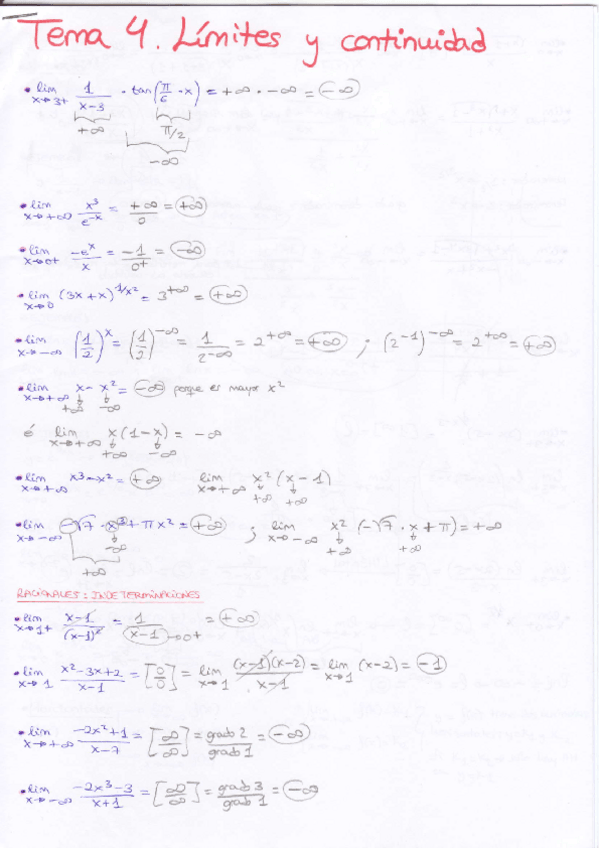 Tema 4. Límites y continuidad
• lim x→3+ 1/(x-3) · tan(π/6 · x) = +∞ · -∞ = -∞
+∞ π/2
-∞
• lim x→+∞ x³/e⁻ˣ = +∞/0 = +∞
• lim x→0+ -eˣ/x = -1/0⁺ = -∞
• lim x→0 (3x+x)^(1/x²) = 3^(+∞) = +∞
• lim x→-∞ (1/2)ˣ = (1/2)^(-∞) = 1/2^(-∞) = 2^(+∞) = +∞ ; (2⁻¹)^(-∞) = 2^(+∞) = +∞
• lim x→+∞ x - x² = -∞ porque es mayor x²
+∞ -∞
é lim x→+∞ x(1-x) = -∞
+∞ -∞
• lim x→+∞ x³-x² = +∞ lim x→+∞ x²(x-1)
+∞ +∞
• lim x→-∞ -√7 · x³ + πx² = +∞ ; lim x→-∞ x²(-√7 · x + π) = +∞
-∞ +∞ +∞
+∞
RACIONALES: INDETERMINACIONES
• lim x→1+ (x-1)/(x-1)² = 1/(x-1) →0+ = +∞
• lim x→1 (x²-3x+2)/(x-1) = [0/0] = lim x→1 (x-1)(x-2)/(x-1) = lim x→1 (x-2) = -1
• lim x→+∞ (-2x²+1)/(x-7) = [∞/∞] = grado 2/grado 1 = -∞
• lim x→-∞ (-2x³-3)/(x+1) = [∞/∞] = grado 3/grado 1 = -∞